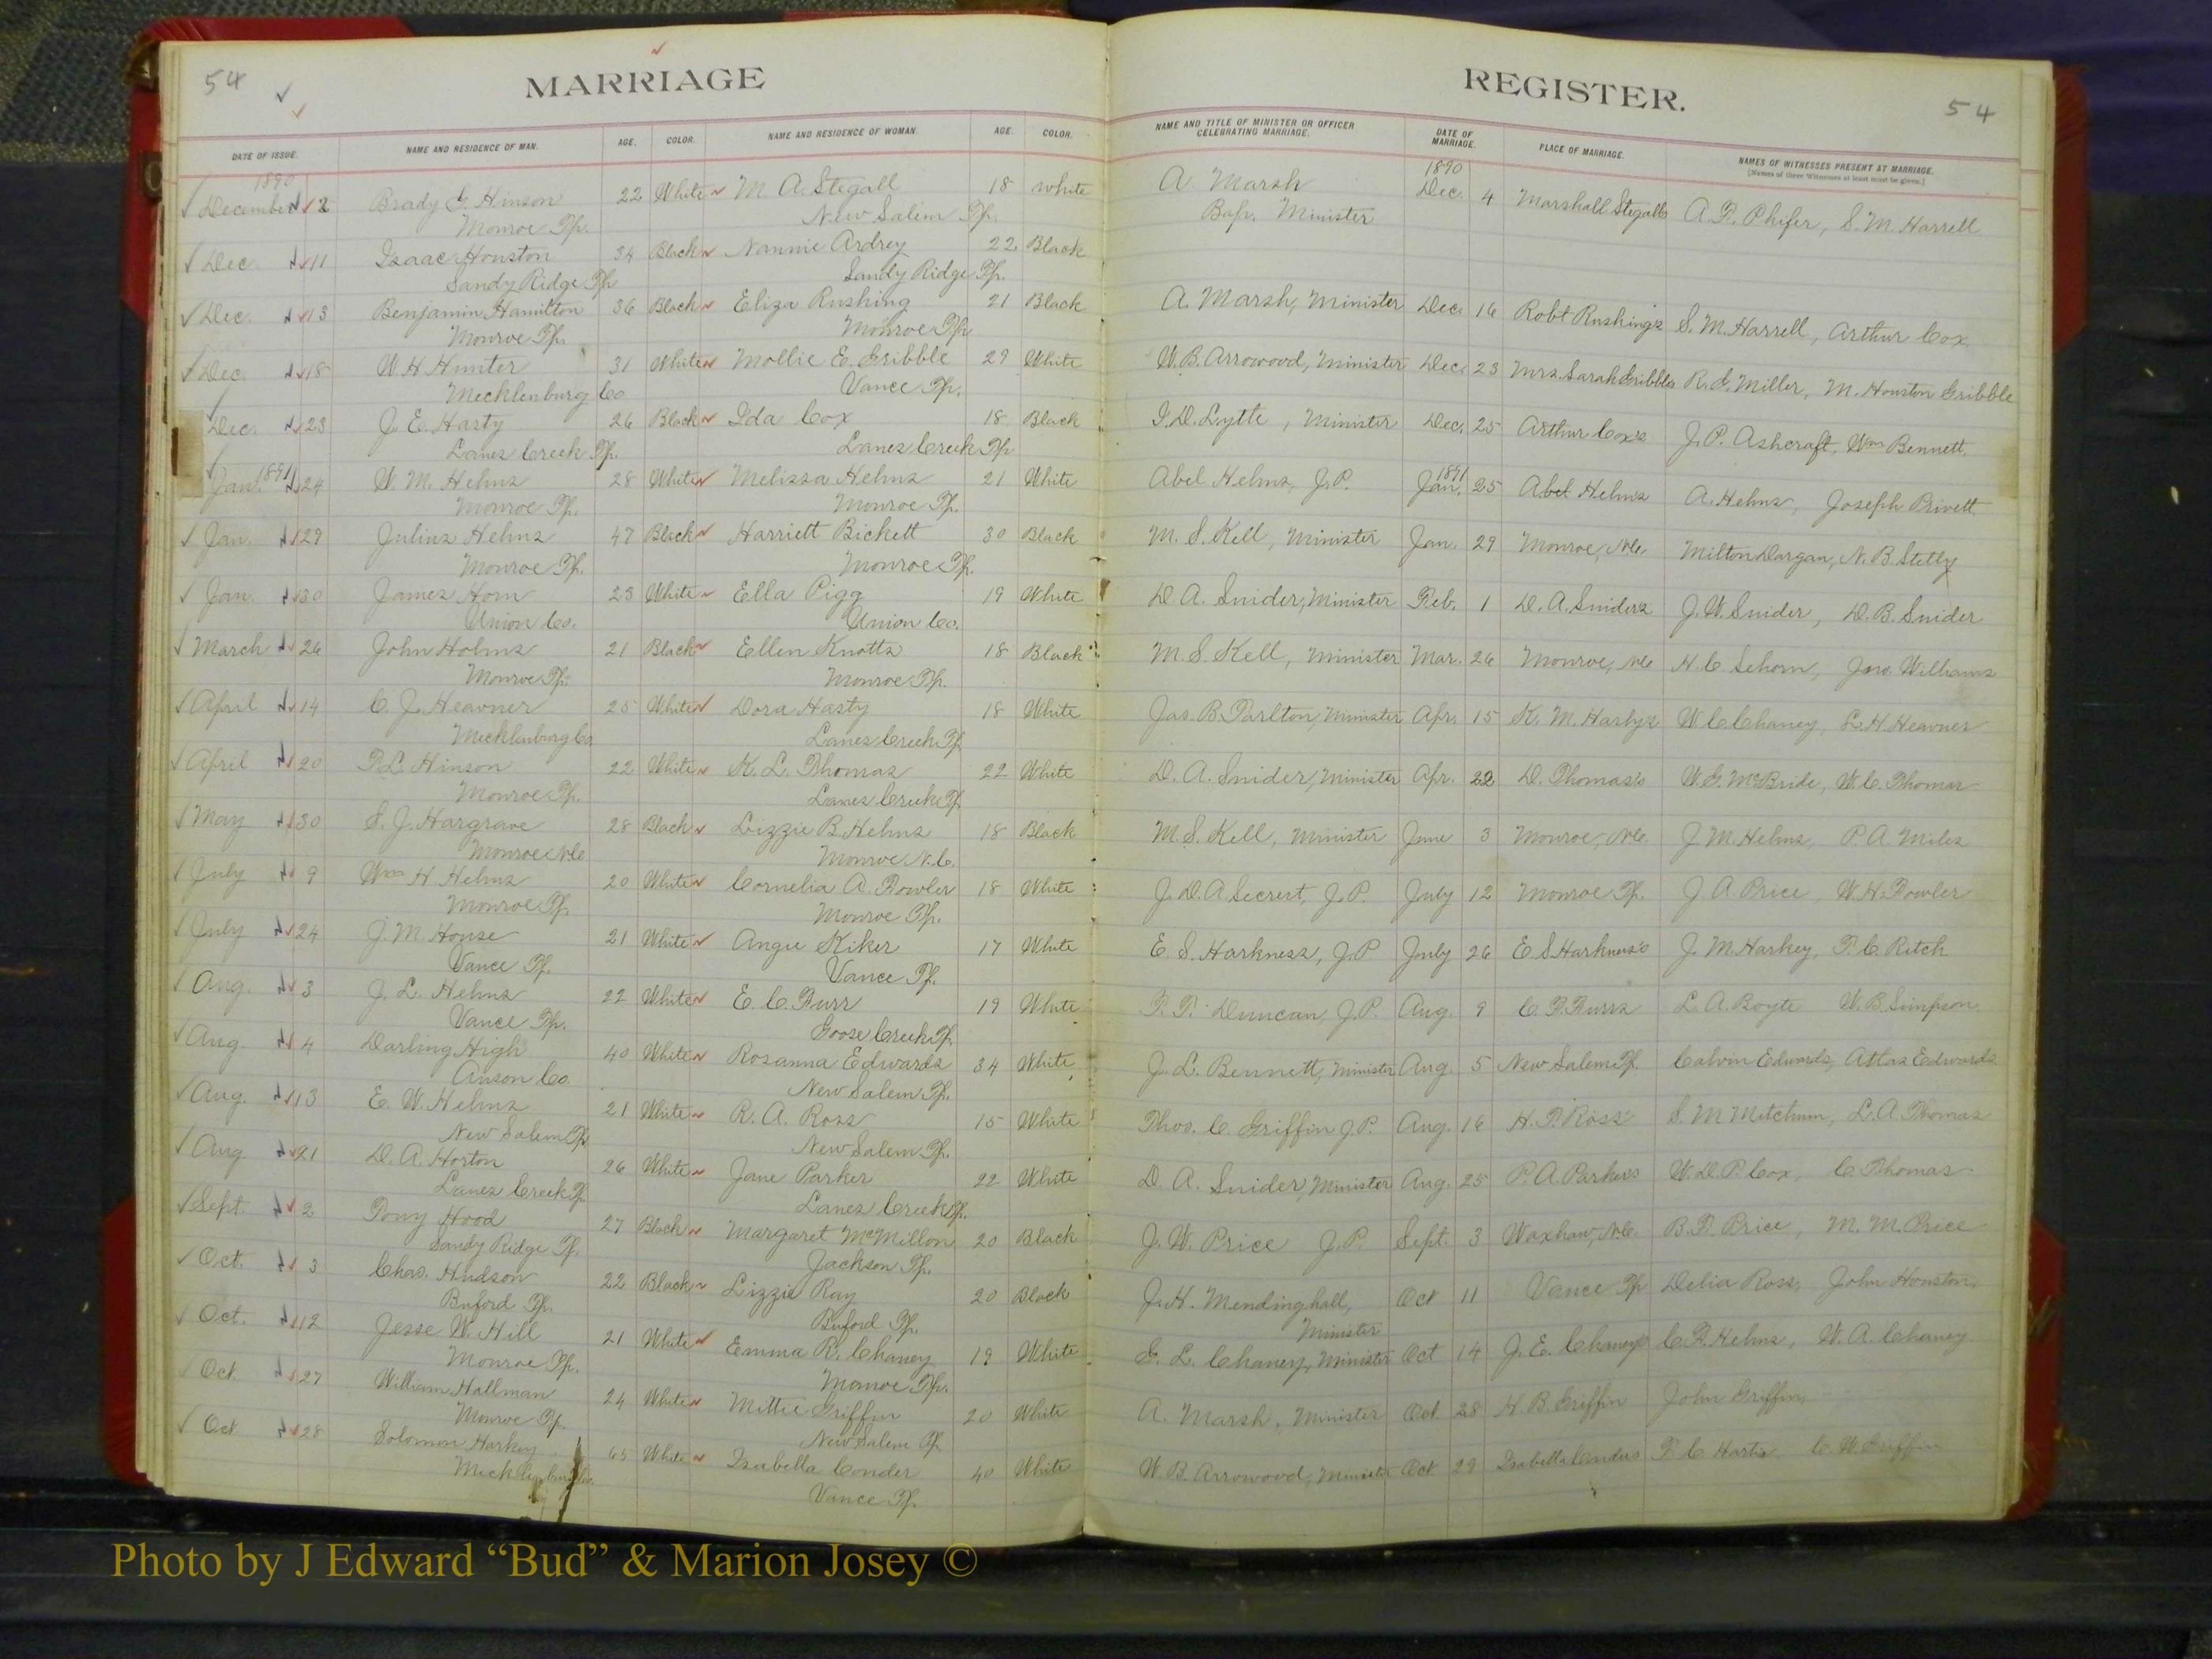 54
MARRIAGE
REGISTER.
54
DATE OF ISSUE. NAME AND RESIDENCE OF MAN. AGE. COLOR. NAME AND RESIDENCE OF WOMAN. AGE. COLOR. NAME AND TITLE OF MINISTER OR OFFICER CELEBRATING MARRIAGE. DATE OF MARRIAGE. PLACE OF MARRIAGE. NAMES OF WITNESSES PRESENT AT MARRIAGE.
[Names of three Witnesses at least must be given.]
1890 1890
December 2 Brady G. Hinson 22 White M. A. Stegall 18 White A. Marsh Dec. 4 Marshall Stegalls A. P. Phifer, S. M. Harrell
Monroe Tp. New Salem Tp. Bap. Minister
Dec. 11 Isaac Houston 34 Black Nannie Ardrey 22 Black
Sandy Ridge Tp Sandy Ridge Tp.
Dec. 13 Benjamin Hamilton 36 Black Eliza Rushing 21 Black A. Marsh, Minister Dec. 16 Robt Rushing's S. M. Harrell, Arthur Cox
Monroe Tp. Monroe Tp
Dec. 18 W. H. Hunter 31 White Mollie E. Gribble 29 White W. B. Arrowood, Minister Dec. 23 Mrs. Sarah Gribbles R. G. Miller, M. Houston Gribble
Mecklenburg Co Vance Tp.
Dec. 23 J. E. Hasty 26 Black Ida Cox 18 Black I. D. Lytle, Minister Dec. 25 Arthur Cox's J. P. Ashcraft, Wm Bennett
Lanes Creek Tp. Lanes Creek Tp
1891 1891
Jan. 24 W. M. Helms 28 White Melissa Helms 21 White Abel Helms, J. P. Jan. 25 Abel Helms A. Helms, Joseph Privett
Monroe Tp. Monroe Tp.
Jan. 29 Julius Helms 47 Black Harriett Bickett 30 Black M. S. Kell, Minister Jan. 29 Monroe, N.C. Milton Dargan, N. B. Stelly
Monroe Tp. Monroe Tp.
Jan. 30 James Horn 23 White Ella Pigg 19 White D. A. Snider, Minister Feb. 1 D. A. Sniders J. W. Snider, D. B. Snider
Union Co. Union Co.
March 26 John Holms 21 Black Ellen Knotts 18 Black M. S. Kell, Minister Mar. 26 Monroe, N.C. H. C. Sehorn, Jno. Williams
Monroe Tp. Monroe Tp.
April 14 C. J. Heavner 25 White Dora Hasty 18 White Jas. B. Tarlton, Minister Apr. 15 K. M. Hasty's W. C. Chaney, L. H. Heavner
Mecklenburg Co. Lanes Creek Tp
April 20 T. L. Hinson 22 White K. L. Thomas 22 White D. A. Snider, Minister Apr. 22 D. Thomas's W. G. McBride, W. C. Thomas
Monroe Tp. Lanes Creek Tp
May 30 S. J. Hargrave 28 Black Lizzie B. Helms 18 Black M. S. Kell, Minister June 3 Monroe, N.C. J. M. Helms, P. A. Miles
Monroe N.C. Monroe N.C.
July 9 Wm H Helms 20 White Cornelia A. Fowler 18 White J. D. A. Secrest, J. P. July 12 Monroe Tp. J. A. Price, W. H. Fowler
Monroe Tp. Monroe Tp.
July 24 J. M. House 21 White Angie Kiker 17 White E. S. Harkness, J. P July 26 E S Harkness's J. M. Harkey, T. C. Ritch
Vance Tp. Vance Tp.
Aug. 3 J. L. Helms 22 White E. C. Furr 19 White F. T. Duncan, J. P. Aug. 9 C. F. Furrs L. A. Boyte W. B. Simpson
Vance Tp. Goose Creek Tp.
Aug. 4 Darling High 40 White Rosanna Edwards 34 White J. L. Bennett, Minister Aug. 5 New Salem Tp. Calvin Edwards, Atlas Edwards
Anson Co. New Salem Tp.
Aug. 13 E. W. Helms 21 White R. A. Ross 15 White Thos. C. Griffin J. P. Aug. 16 H. T. Ross S. M Mitchum, L. A. Thomas
New Salem Tp. New Salem Tp.
Aug. 21 D. A. Horton 26 White Jane Parker 22 White D. A. Snider, Minister Aug. 25 P. A. Parkers W. D. P. Cox, C. Thomas
Lanes Creek Tp. Lanes Creek Tp.
Sept. 2 Tony Hood 27 Black Margaret McMillon 20 Black J. W. Price J. P. Sept. 3 Waxhaw, N.C. B. F. Price, M. M. Price
Sandy Ridge Tp. Jackson Tp.
Oct. 3 Chas. Hudson 22 Black Lizzie Ray 20 Black J. H. Mendinghall, Oct 11 Vance Tp Delia Ross, John Houston
Buford Tp. Buford Tp. Minister
Oct. 12 Jesse W. Hill 21 White Emma R. Chaney 19 White G. L. Chaney, Minister Oct 14 J. E. Chaneys C. F. Helms, W. A. Chaney
Monroe Tp. Monroe Tp.
Oct. 27 William Hallman 24 White Mittie Griffin 20 White A. Marsh, Minister Oct. 28 H. B. Griffin John Griffin,
Monroe Tp New Salem Tp
Oct 28 Solomon Harkey 65 White Isabella Conder 40 White W B. Arrowood, Minister Oct 29 Isabella Conders T. C. Hartis C. W. Griffin
Mecklenburg Co. Vance Tp.
Photo by J Edward “Bud” & Marion Josey ©